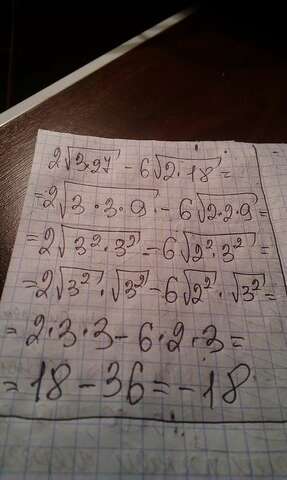 2√3·27 - 6√2·18 =
= 2√3·3·9 - 6√2·2·9 =
= 2√3²·3² - 6√2²·3² =
= 2√3²·√3² - 6√2²·√3² =
= 2·3·3 - 6·2·3 =
= 18 - 36 = -18